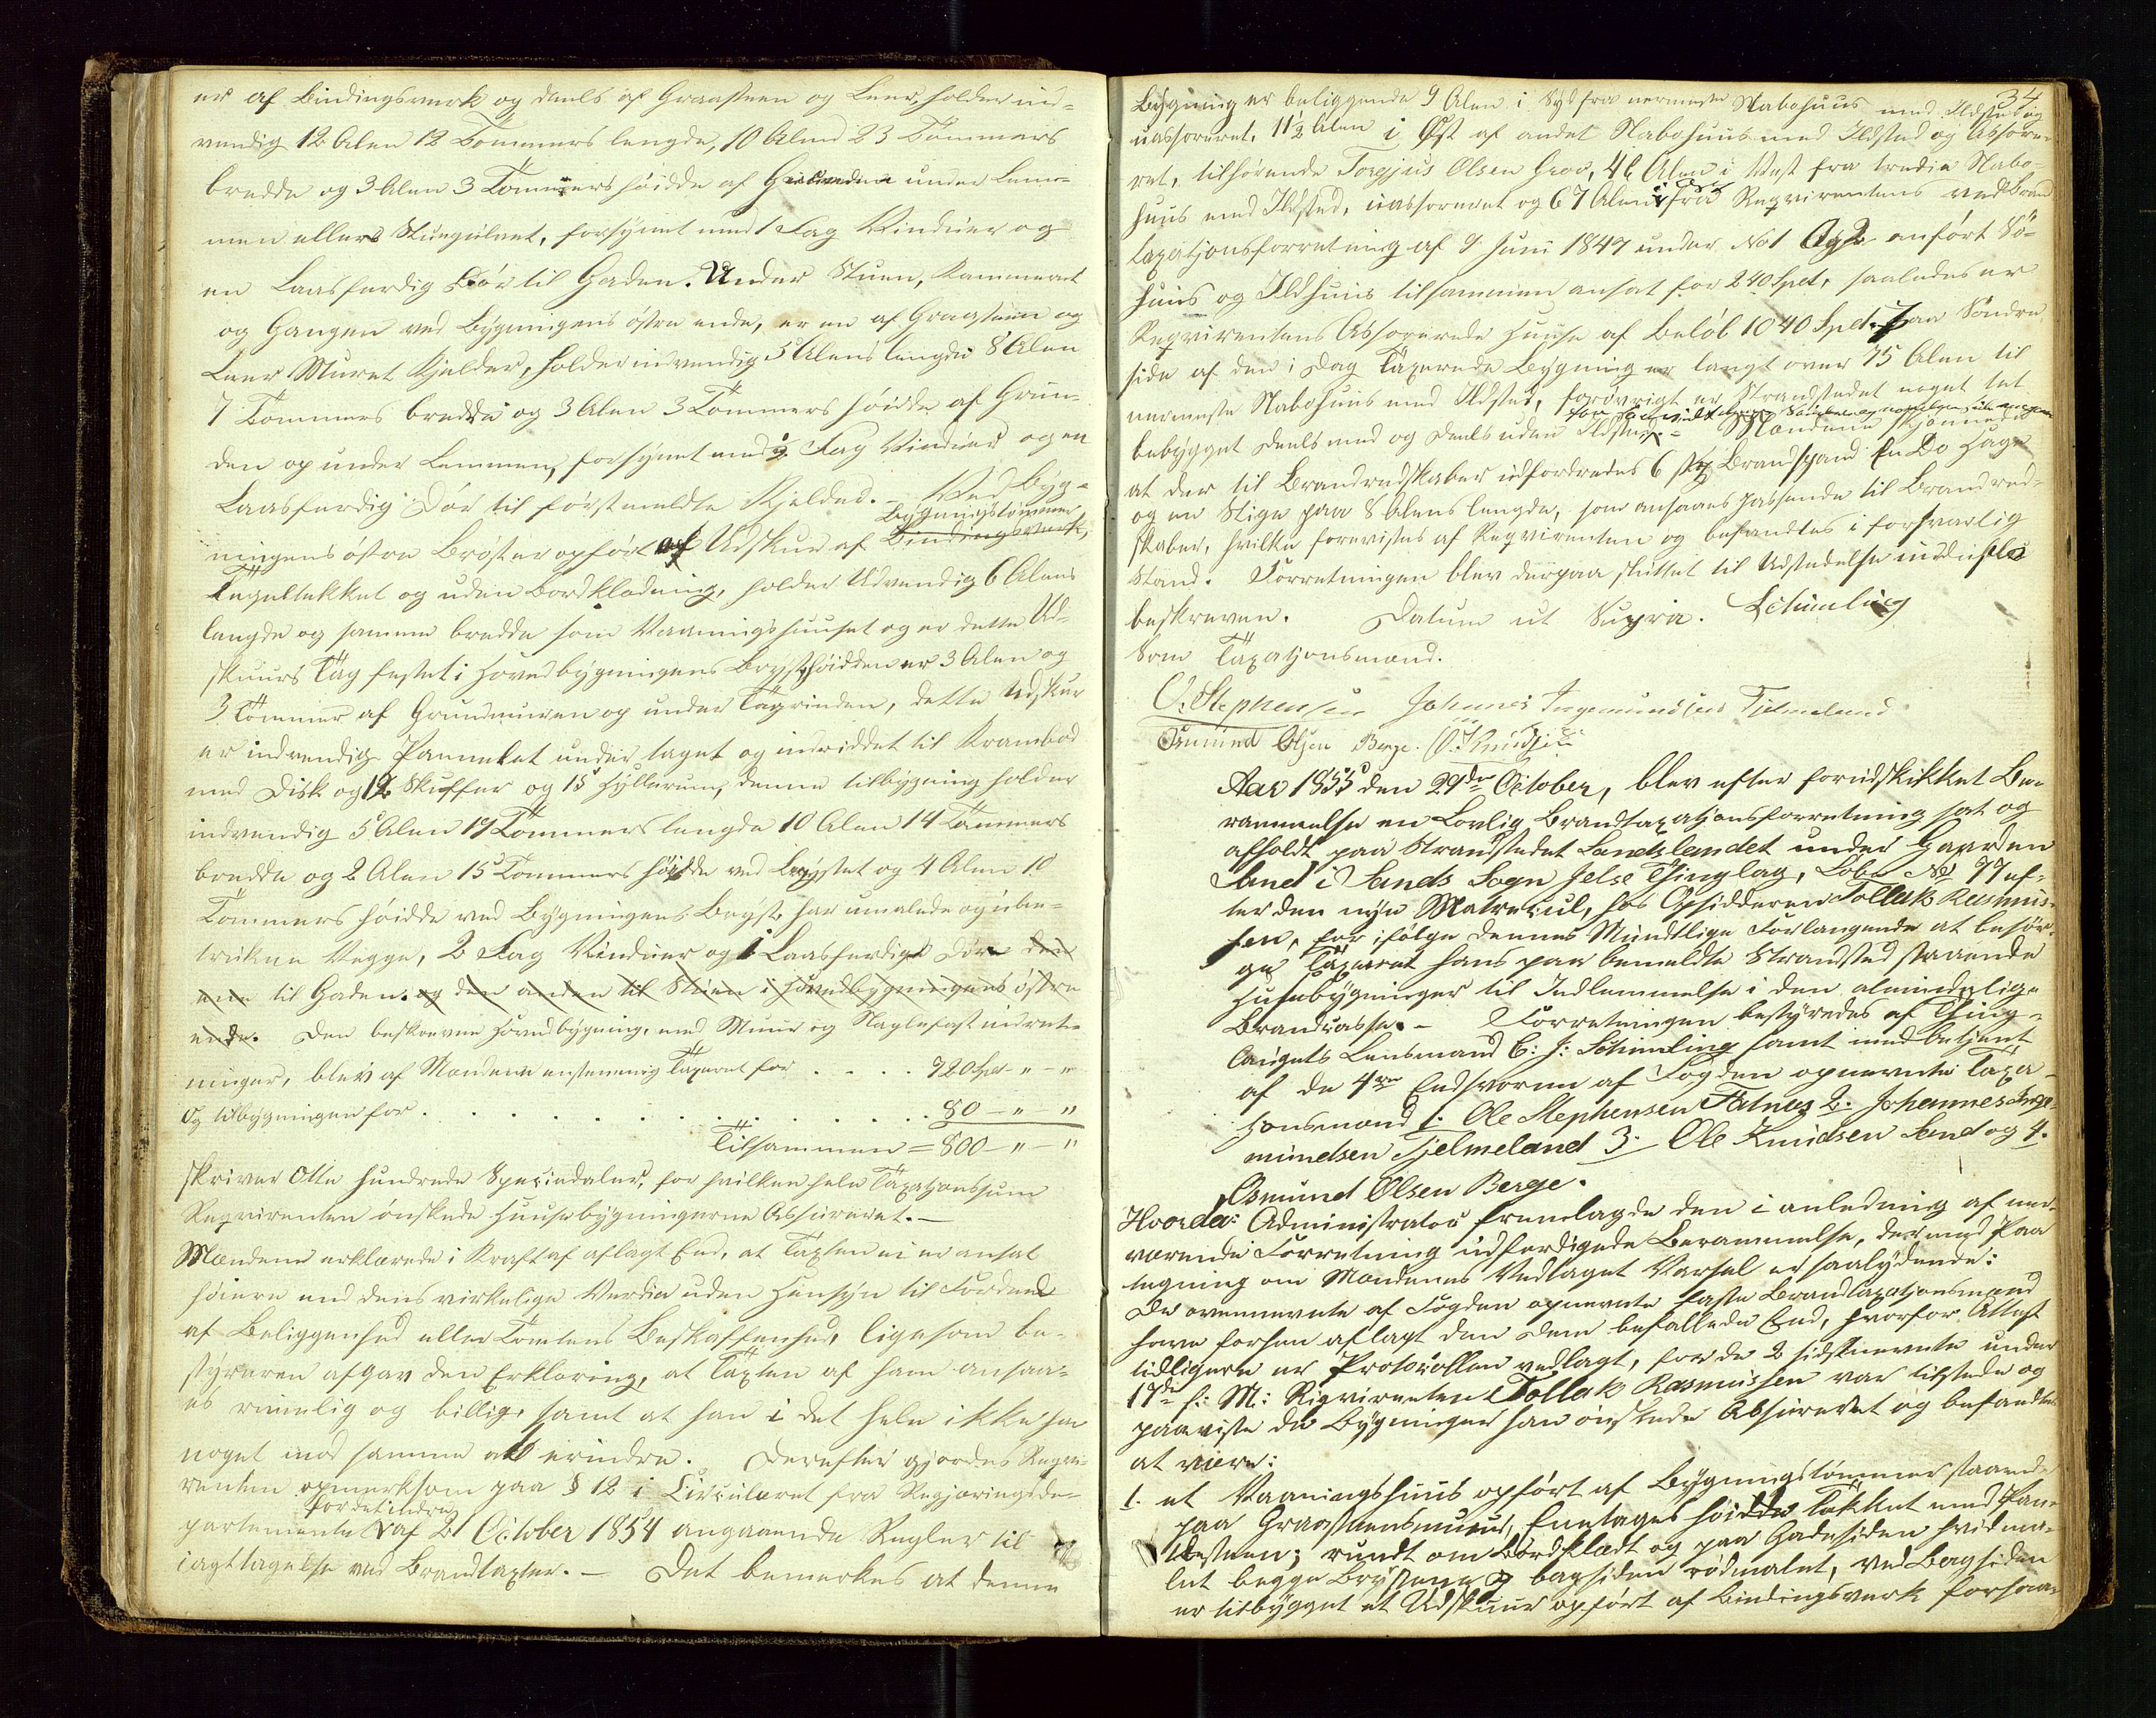 er af Bindingsverk og deels af Graasteen og Leer, holder ind-
vendig 12 Alen 12 Tommers lengde, 10 Alen 23 Tommers
bredde og 3 Alen 3 Tommers høidde af Grunden under Lem-
men ellers Stuegulvet, forsynet med 1 Fag Vinduer og
en Laasferdig Dør til Gaden. Under Stuen, Kammeret
og Gangen ved Bygningens østre ende, er en af Graasteen og
Leer Muret Kjelder, holder indvendig 5 Alens lengde 8 Alen
7 Tommers bredde og 3 Alen 3 Tommers høidde af Grun-
den op under Lemmen, forsynet med ½ Fag Vinduer og en
Laasferdig Dør til førstmeldte Kjelder. – Ved Byg-
ningens østre Brøster opført et Udskur af Bygningstømmer
Bindingsverk,
Tegeltekket og uden Bordklædning, holder Udvendig 6 Alens
lengde og samme bredde som Vaaningshuuset og er dette Ud-
skuurs Tag festet i Hovedbygningens Bryst, høidden er 3 Alen og
3 Tommer af Grundmuren op under Tagrinden, dette Udskur
er indvendig Pannelet under taget og indreddet til Krambod
med Disk og 12 Skuffer og 15 Hyllerum, denne tilbygning holder
indvendig 5 Alen 19 Tommers lengde 10 Alen 14 Tommers
bredde og 2 Alen 15 Tommers høidde ved Brystet og 4 Alen 10
Tommers høidde ved Bygningens Bryst, har umalede og ube-
trukne Vegge, 2 Fag Vinduer og 1 Laasferdige Døre den
ene til Gaden. og den anden til Stuen i Hovedbygningens østre
ende. Den beskrevne Hovedbygning, med Muur og Naglefast indret-
ninger, blev af Mændene enstemmig Taxeret for . . . . 720 Spd – " – "
Og tilbygningen for . . . . . . . . . . 80 – " – "
Tilsammen = 800 – " – "
skriver Otte Hundrede Speciedaler, for hvilken hele Taxationssum
Reqvirenten ønskede Huusebygningerne Assureret. –
Mændene erklærede i Kraft af aflagt Eed, at Taxten ei er ansat
høiere end dens virkelige Verdie uden Hensyn til Fordele
af Beliggenhed eller Tomtens Beskaffenhed, ligesom be-
styreren afgav den Erklæring, at Taxten af ham ansaa-
es rimelig og billig, samt at han i det hele ikke har
noget mod samme at erindre. Derefter gjordes Reqvi-
renten opmerksom paa § 12 i Circulæret fra Regjeringsde-
for det indre
partementet af 21 October 1854 angaaende Regler til
iagttagelse ved Brandtaxter. – Det bemerkes at denne
34
Bygning er beliggende 9 Alen i Syd fra nermeste Nabohuus med Ildsted og
uassureret. 11½ Alen i Øst af andet Nabohuus med Ildsted og Assure-
ret, tilhørende Torgjus Olsen Groe, 46 Alen i Vest fra tredie Nabo-
huus med Ildsted, uassureret og 67 Alen i fra Reqvirentens ved Brand
taxationsforretning af 9 Juni 1847 under No 1 Og 2 anført Sø-
huus og Ildhuus tilsammen ansat for 240 Spd, saaledes er
Reqvirentens Assurerede Huuse af Beløb 1040 Spd. Paa Søndre
side af den i Dag Taxerede Bygning er langt over 75 Alen til
nermeste Nabohuus med Ildsted, forøvrigt er Strandstedet noget tet
bebygget deels med og deels uden Ildsted. – Mændene skjønnede
at der til Brandredskaber udfordredes 6 stk Brandspand En Do Hage
og en Stige paa 8 Alens lengde, som ansaaes passende til Brandred-
skaber, hvilke forevistes af Reqvirenten og befandtes i forsvarlig
Stand. Forretningen blev derpaa sluttet til Udstedelse in duplo
beskreven. Datum ut Supra. Schimling
Som Taxationsmænd.
O. Stephensen Johannes Ingemundsen Tjelmeland
Osmund Olsen Berge. O. Knudsen
Aar 1855 den 29de October, blev efter forudskikket Be-
rammelse en Lovlig Brandtaxationsforretning sat og
afholdt paa Strandstedet Sandslandet under Gaarden
Sand i Sands Sogn Jelse Thinglag, Løbe No 77 ef-
ter den nye Matrecul, hos Opsidderen Tollak Rasmus-
sen, for ifølge dennes Mundtlige Forlangende at besør-
ge Taxeret hans paa bemeldte Strandsted staaende
Husebygninger til Indlemmelse i den almindelige
Brandcasse. – Forretningen bestyredes af Thing-
laugets Lensmand C: J: Schimling samt med betjent
af de 4re Eedsvorne af Fogden opnevnte Taxa-
tionsmænd 1. Ole Stephensen Fatnes 2. Johannes Inge-
mundsen Tjelmeland 3. Ole Knudsen Sand og 4.
Osmund Olsen Berge.
Hvorda: Administrator fremlagde den i anledning af nær-
værende Forretning udferdigede Berammelse, der med Paa
tegning om Mændenes Vedtaget Varsel er saalydende:
De ovennevnte af Fogden opnevnte faste Brandtaxationsmænd
have forhen aflagt den dem befallede Eed, hvorfor Attest
tidligere er Protocollen vedlagt, for de 2 sidstnevnte under
17de f: M: Riqvirenten Tollak Rasmussen var tilstede og
paaviste de Bygninger han ønskede Assureret og befandtes
at være:
1. et Vaaningshuus opført af Bygningstømmer staaende
paa Graasteensmuur, Enetages høidde Tekket med Pan-
desteen; rundt om Bordklædt og paa Gadesiden hvidma-
let begge Brystene og bagsiden rødmalet, ved Bagsiden
er tilbygget et Udskuur opført af Bindingsverk forsaa-